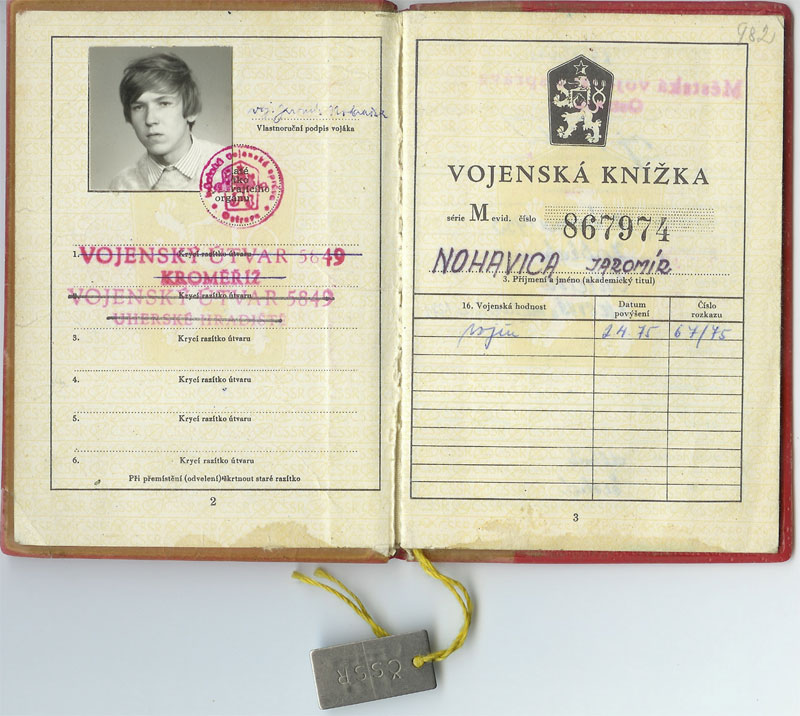 Vlastnoruční podpis vojáka
Ostrava
1. Krycí razítko útvaru
VOJENSKÝ ÚTVAR 5649
KROMĚŘÍŽ
Krycí razítko útvaru
VOJENSKÝ ÚTVAR 5849
UHERSKÉ HRADIŠTĚ
3. Krycí razítko útvaru
4. Krycí razítko útvaru
5. Krycí razítko útvaru
6. Krycí razítko útvaru
Při přemístění (odvelení) škrtnout staré razítko
2
982
VOJENSKÁ KNÍŽKA
série M evid. číslo 867974
NOHAVICA JAROMÍR
3. Příjmení a jméno (akademický titul)
16. Vojenská hodnost Datum povýšení Číslo rozkazu
vojín 2 4 75 67/75
3
ČSSR